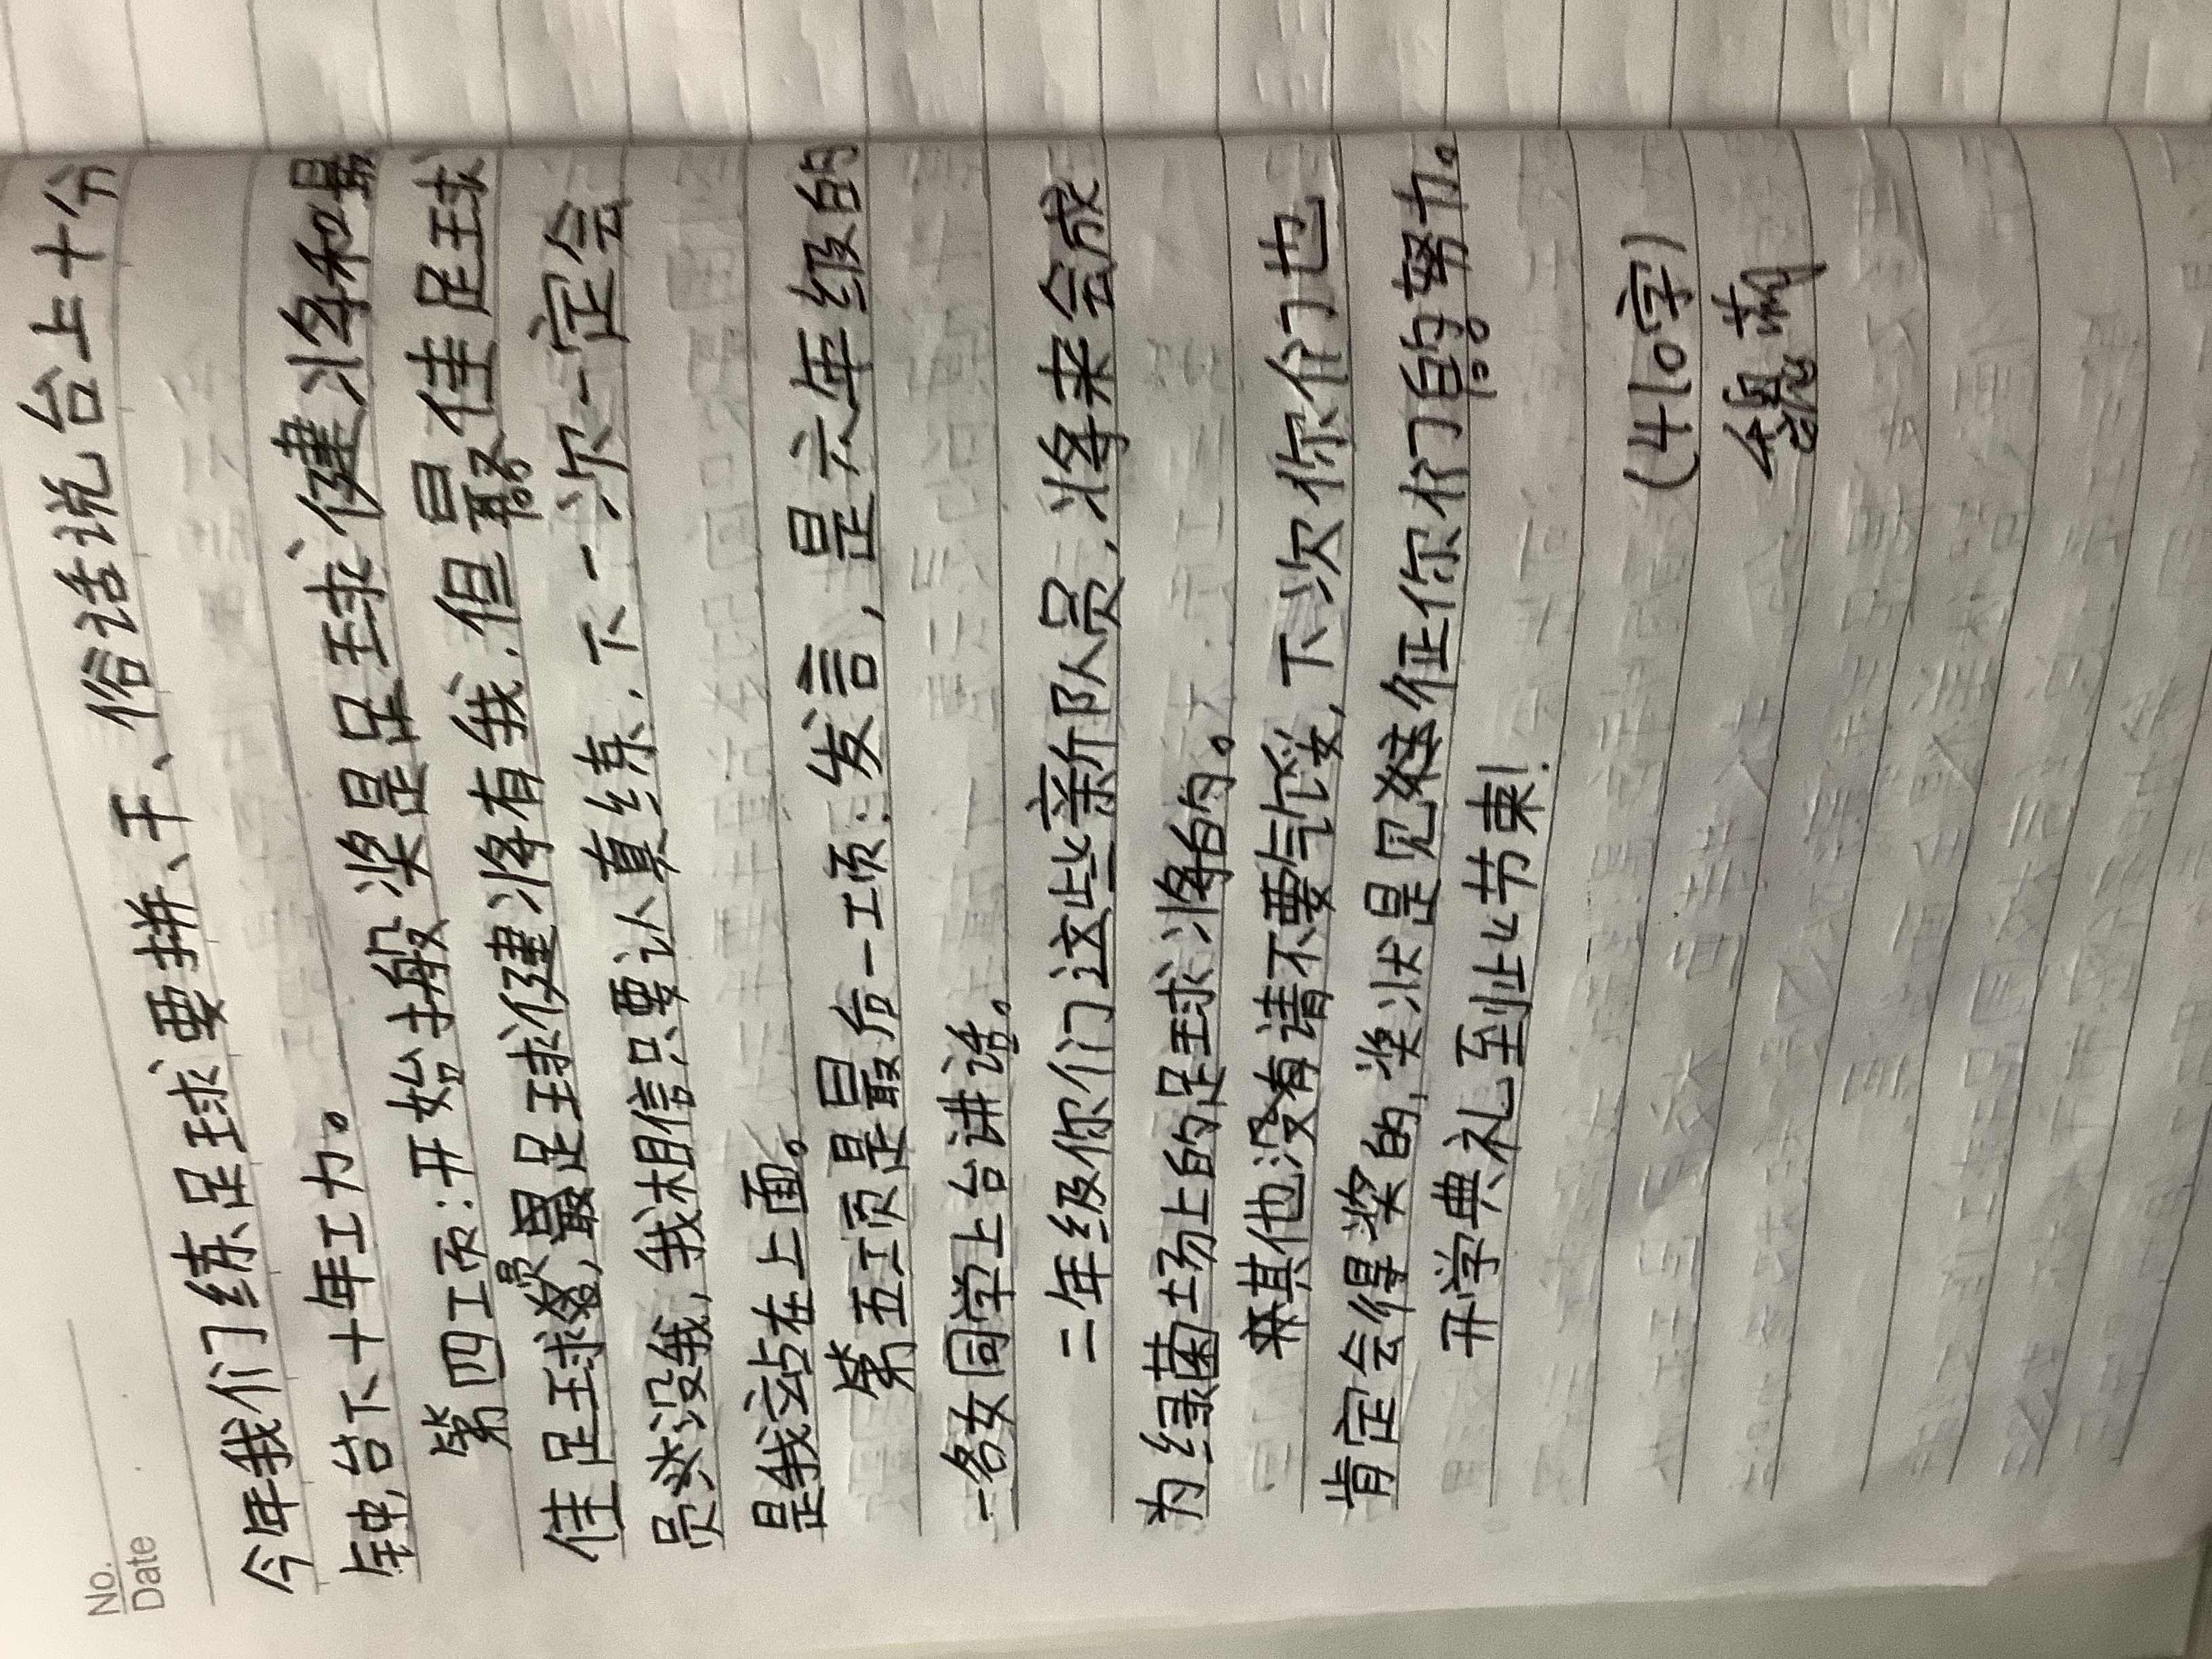 No.
Date
今年我们练足球要拼、干、俗话说台上十分
钟,台下十年工力。
第四工页:开始搬奖是足球健将和最
佳足球员,最足球健将有我,但最佳足球
员没我,我相信只要认真练,下一次一定会
是我站在上面。
第五工页是最后一工页:发言,是六年级的
一名女同学上台讲话。
二年级你们这些新队员,将来会成
为绿菌场上的足球将的。
其他没有请不要气馁,下次你们也
肯定会得奖的,奖状是见征你们的努力。
开学典礼到止节束!
(410字)